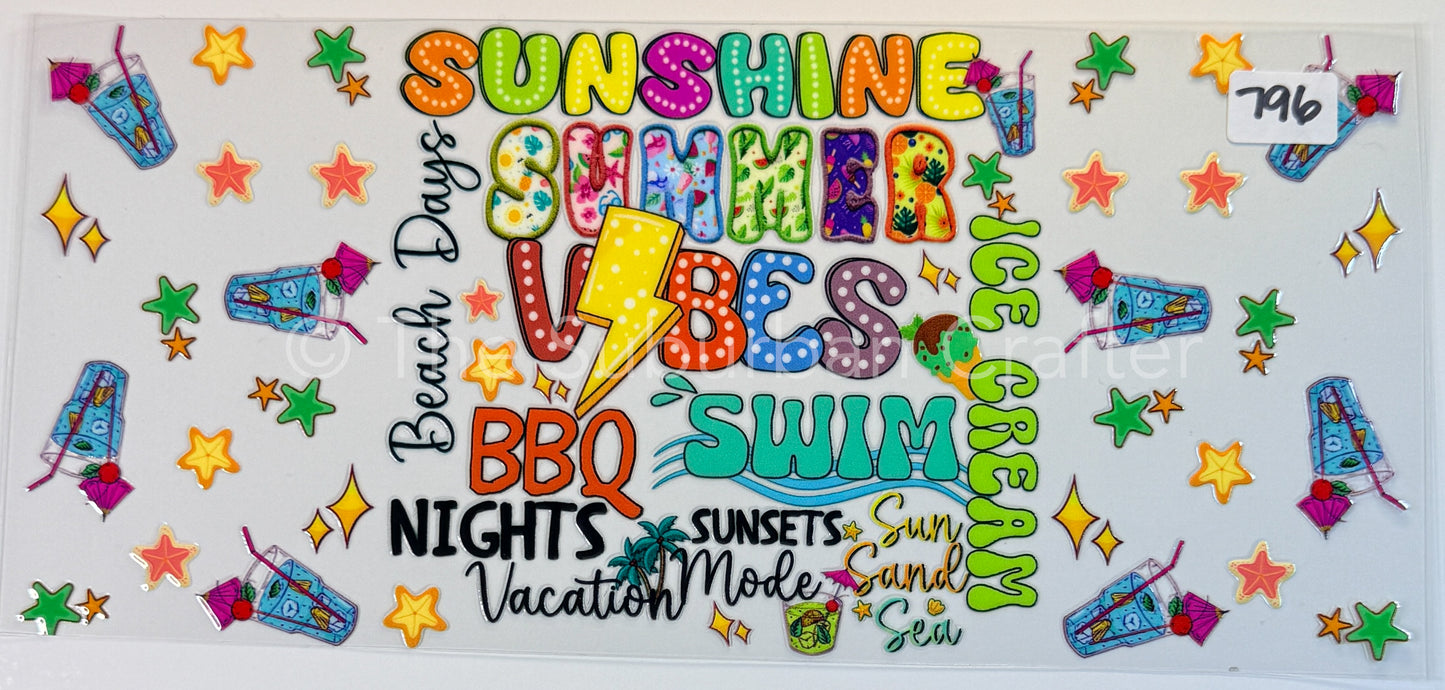 SUNSHINE
796
SUMMER
Beach Days
VIBES
ICE CREAM
© The Suburban Crafter
BBQ
SWIM
NIGHTS
SUNSETS
Sun
Vacation Mode
Sand
Sea